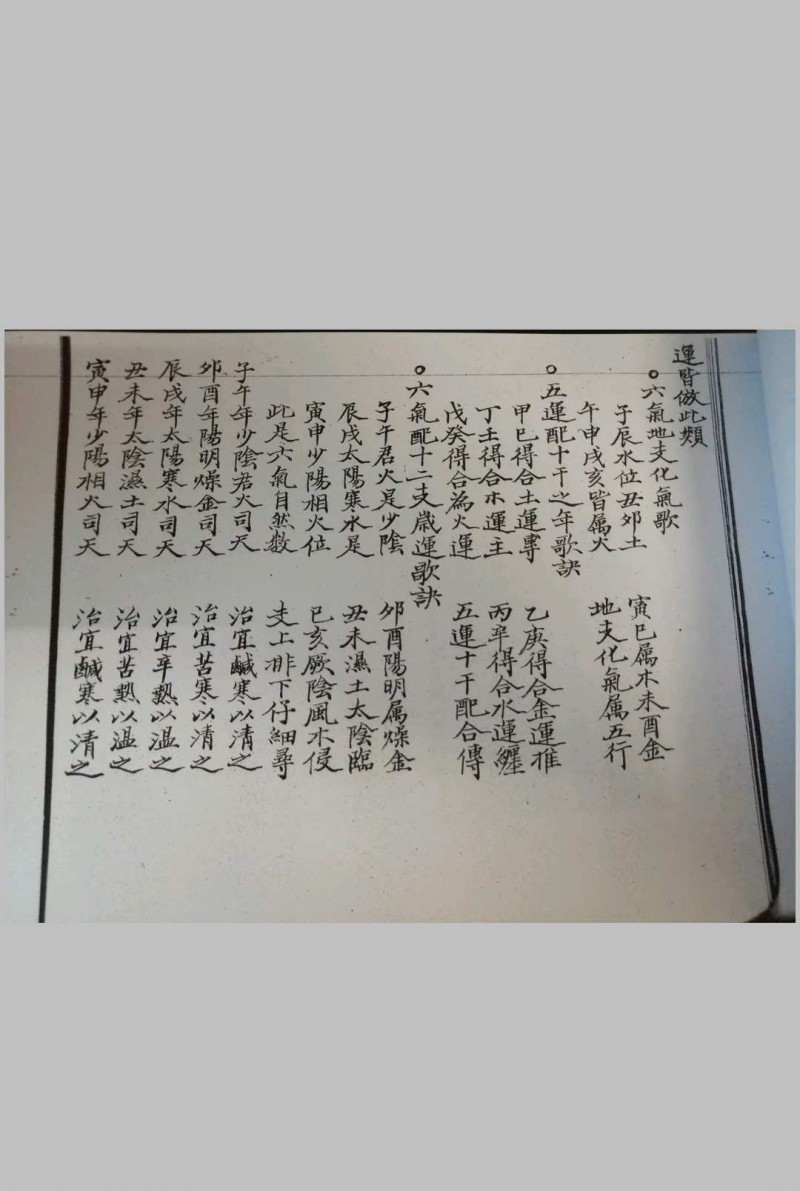 運皆倣此類
○六氣地支化氣歌
子辰水位丑卯土 寅巳属木未酉金
午申戌亥皆属火 地支化氣属五行
○五運配十干之年歌訣
甲巳得合土運專 乙庚得合金運推
丁壬得合木運主 丙辛得合水運纏
戊癸得合為火運 五運十干配合傳
○六氣配十二支歲運歌訣
子午君火是少陰 卯酉陽明属燥金
辰戌太陽寒水是 丑未濕土太陰臨
寅申少陽相火位 巳亥厥陰風木侵
此是六氣自然数 支上排下仔細尋
子午年少陰君火司天 治宜鹹寒以清之
卯酉年陽明燥金司天 治宜苦寒以清之
辰戌年太陽寒水司天 治宜辛熱以溫之
丑未年太陰濕土司天 治宜苦熱以温之
寅申年少陽相火司天 治宜鹹寒以清之